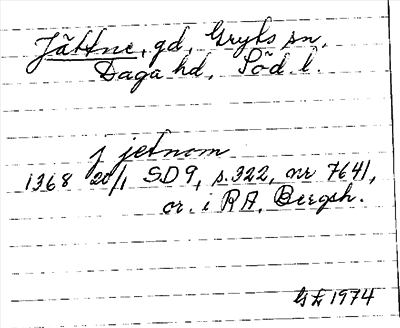 Jättne, gd, Gryts sn,
Daga hd, Söd. l.
j jetnom
1368 20/1 SD 9, s. 322, nr 7641,
or. i RA, Bergsh.
GL 1974